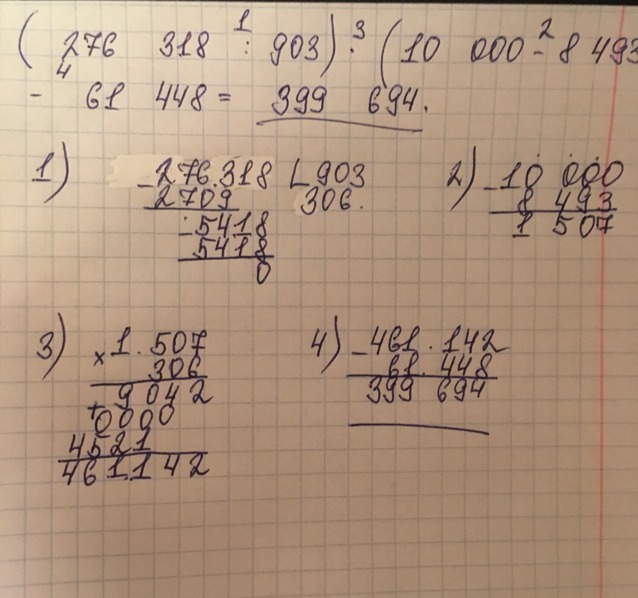 ( 276 318 : 903) · (10 000 - 8 493
1 3 2
4
- 61 448 = 399 694.
1) 276.318 903 2) 10 000
- 2709 306. - 8 493
- 5418 1 507
5418
0
3) × 1.507 4) - 461.142
306 61.448
9042 399 694
+ 0000
4521
461.142